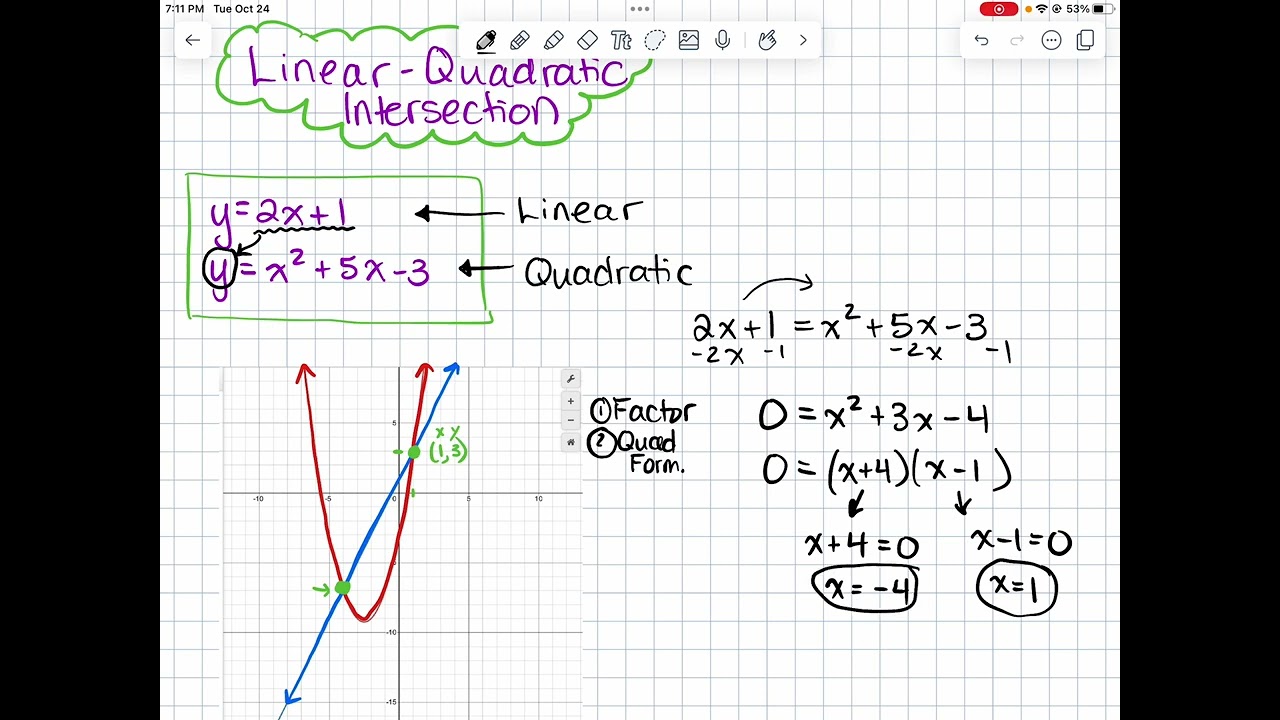 7:11 PM Tue Oct 24
53%
Tt
Linear-Quadratic
Intersection
y=2x+1
Linear
y=x²+5x-3
Quadratic
2x+1=x²+5x-3
-2x -1 -2x -1
① Factor
② Quad
Form.
0=x²+3x-4
0=(x+4)(x-1)
x+4=0 x-1=0
x=-4 x=1
x y
(1,3)
5
-10 -5 0 5 10
-10
-15